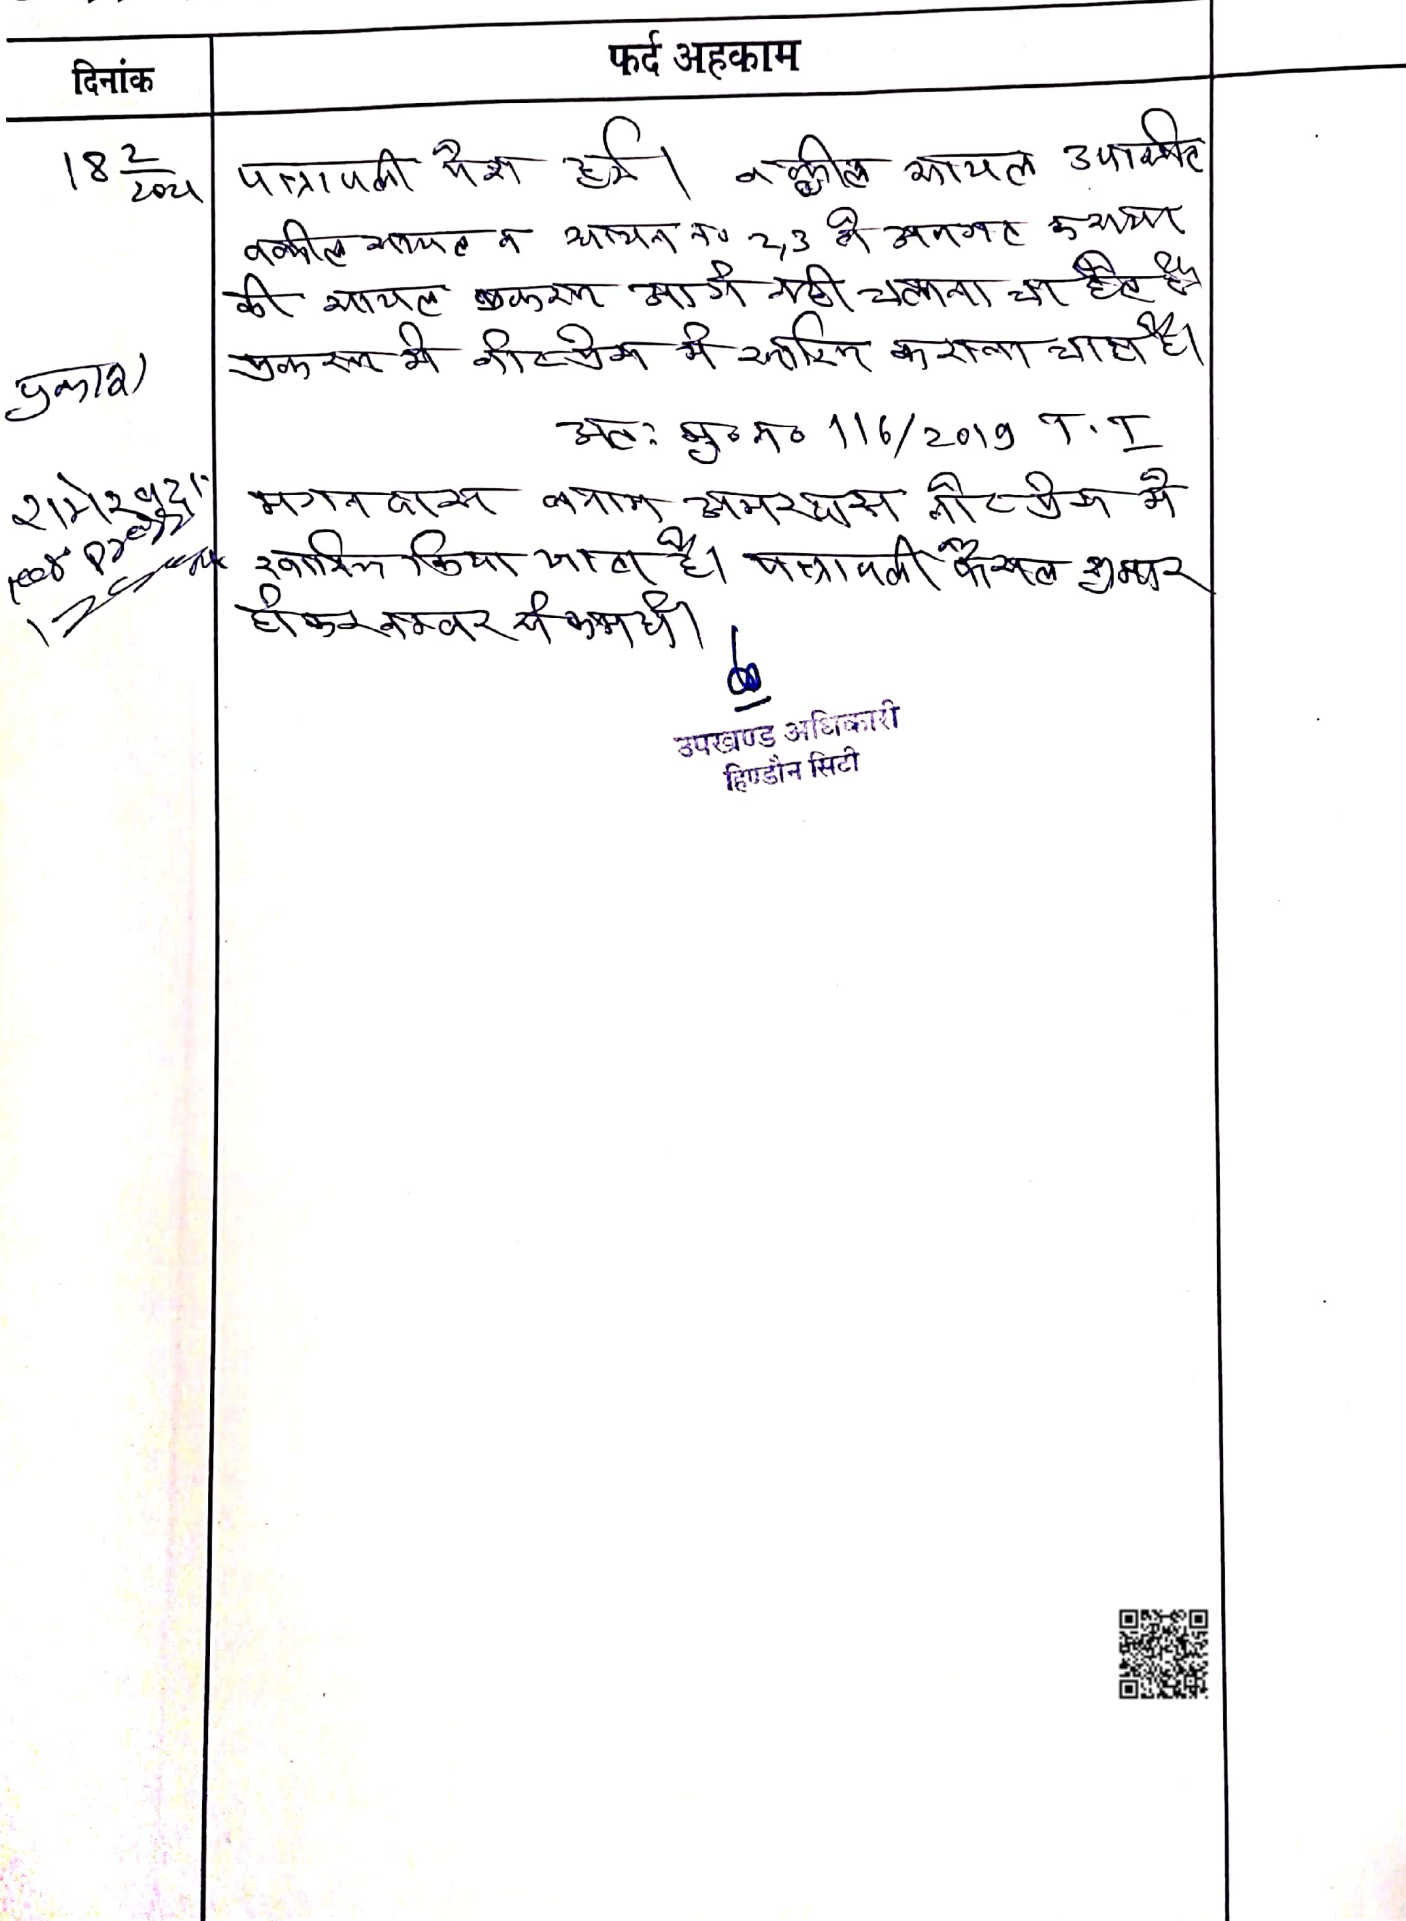 दिनांक
फर्द अहकाम
18 2/2021 पत्रावली पेश हुई। वकील सायल उपस्थित
वकील सायल व सायल न० 2,3 ने अवगत कराया
की सायल प्रकरण आगे नही चलाना चाहते है
प्रकरण में नोटप्रेस में खारिज कराना चाहते है।
प्रकाश
अतः मु० न० 116/2019 T.I
मगन दास बनाम अमरदास नोटप्रेस में
खारिज किया जाता है। पत्रावली फैसल शुमार
होकर नम्बर से कम हो।
उपखण्ड अधिकारी
हिण्डौन सिटी